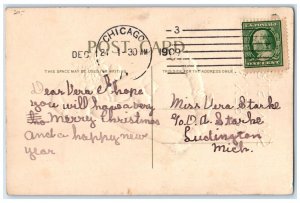 CHICAGO
DEC 24 1-30 AM 1909
- 3
POST CARD
THIS SPACE MAY BE USED FOR MESSAGE
THE ADDRESS ONLY TO BE WRITTEN HERE
Dear Vera I hope
you will have a very
Merry Christmas
and a happy new
year
Miss Vera Starke
c/o A. Starke
Ludington
Mich.